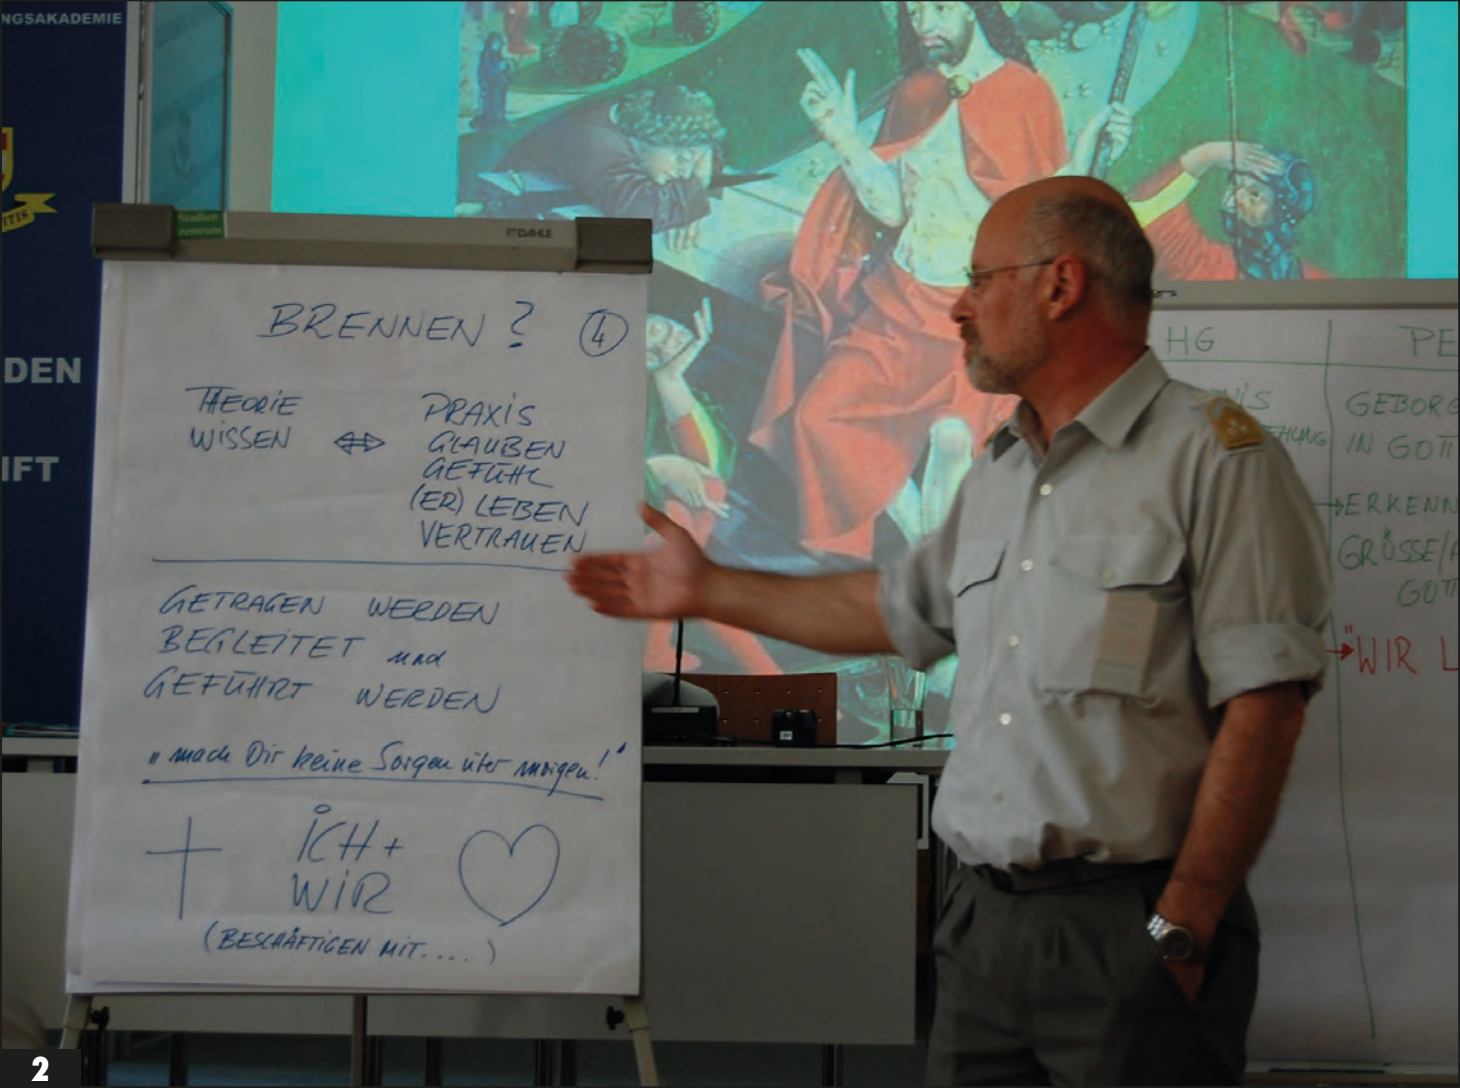 NGSAKADEMIE
ITIS
DEN
IFT
Studien
zentrum
DAHLE
BRENNEN ? 4
THEORIE
WISSEN
PRAXIS
GLAUBEN
GEFÜHL
(ER) LEBEN
VERTRAUEN
GETRAGEN WERDEN
BEGLEITET und
GEFÜHRT WERDEN
„mach Dir keine Sorgen über morgen!“
ICH +
WIR
(BESCHÄFTIGEN MIT....)
HG
PE
GEBORG
IN GOTT
ERKENN
GRÖSSE/
GOTT
"WIR L
2